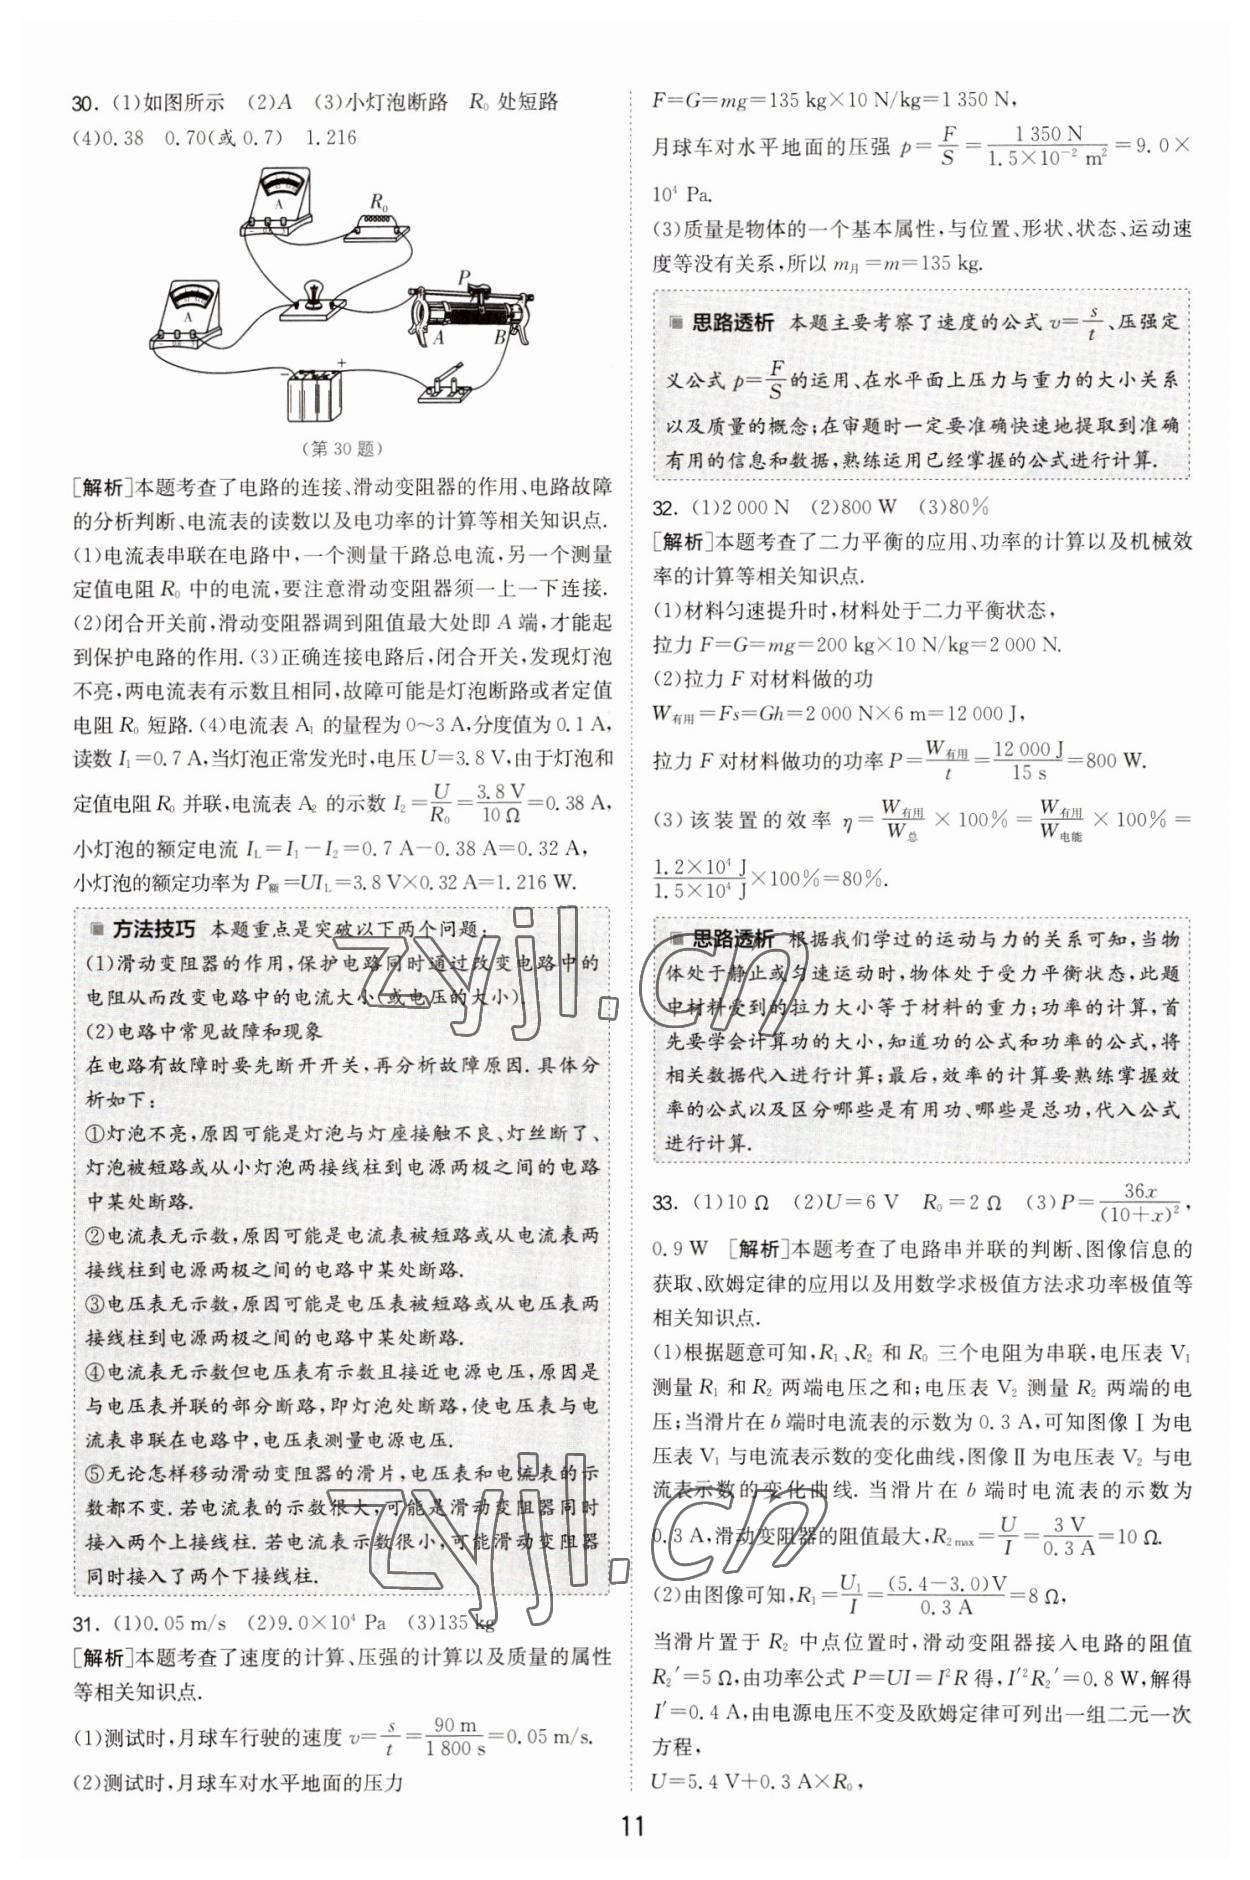 30. (1)如图所示 (2)A (3)小灯泡断路 R₀ 处短路
(4)0.38 0.70(或 0.7) 1.216
A
R₀
A
P
A
B
−
+
(第 30 题)
[解析]本题考查了电路的连接、滑动变阻器的作用、电路故障
的分析判断、电流表的读数以及电功率的计算等相关知识点.
(1)电流表串联在电路中,一个测量干路总电流,另一个测量
定值电阻 R₀ 中的电流,要注意滑动变阻器须一上一下连接.
(2)闭合开关前,滑动变阻器调到阻值最大处即 A 端,才能起
到保护电路的作用.(3)正确连接电路后,闭合开关,发现灯泡
不亮,两电流表有示数且相同,故障可能是灯泡断路或者定值
电阻 R₀ 短路.(4)电流表 A₁ 的量程为 0～3 A,分度值为 0.1 A,
读数 I₁=0.7 A,当灯泡正常发光时,电压 U=3.8 V,由于灯泡和
定值电阻 R₀ 并联,电流表 A₂ 的示数 I₂=U/R₀=3.8 V/10 Ω=0.38 A,
小灯泡的额定电流 I_L=I₁−I₂=0.7 A−0.38 A=0.32 A,
小灯泡的额定功率为 P额=UI_L=3.8 V×0.32 A=1.216 W.
方法技巧 本题重点是突破以下两个问题:
(1)滑动变阻器的作用,保护电路同时通过改变电路中的
电阻从而改变电路中的电流大小(或电压的大小).
(2)电路中常见故障和现象
在电路有故障时要先断开开关,再分析故障原因.具体分
析如下:
①灯泡不亮,原因可能是灯泡与灯座接触不良、灯丝断了、
灯泡被短路或从小灯泡两接线柱到电源两极之间的电路
中某处断路.
②电流表无示数,原因可能是电流表被短路或从电流表两
接线柱到电源两极之间的电路中某处断路.
③电压表无示数,原因可能是电压表被短路或从电压表两
接线柱到电源两极之间的电路中某处断路.
④电流表无示数但电压表有示数且接近电源电压,原因是
与电压表并联的部分断路,即灯泡处断路,使电压表与电
流表串联在电路中,电压表测量电源电压.
⑤无论怎样移动滑动变阻器的滑片,电压表和电流表的示
数都不变.若电流表的示数很大,可能是滑动变阻器同时
接入两个上接线柱.若电流表示数很小,可能滑动变阻器
同时接入了两个下接线柱.
31. (1)0.05 m/s (2)9.0×10⁴ Pa (3)135 kg
[解析]本题考查了速度的计算、压强的计算以及质量的属性
等相关知识点.
(1)测试时,月球车行驶的速度 v=s/t=90 m/1 800 s=0.05 m/s.
(2)测试时,月球车对水平地面的压力
F=G=mg=135 kg×10 N/kg=1 350 N,
月球车对水平地面的压强 p=F/S=1 350 N/1.5×10⁻² m²=9.0×
10⁴ Pa.
(3)质量是物体的一个基本属性,与位置、形状、状态、运动速
度等没有关系,所以 m月=m=135 kg.
思路透析 本题主要考察了速度的公式 v=s/t、压强定
义公式 p=F/S的运用、在水平面上压力与重力的大小关系
以及质量的概念;在审题时一定要准确快速地提取到准确
有用的信息和数据,熟练运用已经掌握的公式进行计算.
32. (1)2 000 N (2)800 W (3)80%
[解析]本题考查了二力平衡的应用、功率的计算以及机械效
率的计算等相关知识点.
(1)材料匀速提升时,材料处于二力平衡状态,
拉力 F=G=mg=200 kg×10 N/kg=2 000 N.
(2)拉力 F 对材料做的功
W有用=Fs=Gh=2 000 N×6 m=12 000 J,
拉力 F 对材料做功的功率 P=W有用/t=12 000 J/15 s=800 W.
(3)该装置的效率 η=W有用/W总×100%=W有用/W电能×100%=
1.2×10⁴ J/1.5×10⁴ J×100%=80%.
思路透析 根据我们学过的运动与力的关系可知,当物
体处于静止或匀速运动时,物体处于受力平衡状态,此题
中材料受到的拉力大小等于材料的重力;功率的计算,首
先要学会计算功的大小,知道功的公式和功率的公式,将
相关数据代入进行计算;最后,效率的计算要熟练掌握效
率的公式以及区分哪些是有用功、哪些是总功,代入公式
进行计算.
33. (1)10 Ω (2)U=6 V R₀=2 Ω (3)P=36x/(10+x)²,
0.9 W [解析]本题考查了电路串并联的判断、图像信息的
获取、欧姆定律的应用以及用数学求极值方法求功率极值等
相关知识点.
(1)根据题意可知,R₁、R₂ 和 R₀ 三个电阻为串联,电压表 V₁
测量 R₁ 和 R₂ 两端电压之和;电压表 V₂ 测量 R₂ 两端的电
压;当滑片在 b 端时电流表的示数为 0.3 A,可知图像Ⅰ为电
压表 V₁ 与电流表示数的变化曲线,图像Ⅱ为电压表 V₂ 与电
流表示数的变化曲线.当滑片在 b 端时电流表的示数为
0.3 A,滑动变阻器的阻值最大,R₂max=U/I=3 V/0.3 A=10 Ω.
(2)由图像可知,R₁=U₁/I=(5.4−3.0)V/0.3 A=8 Ω,
当滑片置于 R₂ 中点位置时,滑动变阻器接入电路的阻值
R₂′=5 Ω,由功率公式 P=UI=I²R 得,I′²R₂′=0.8 W,解得
I′=0.4 A,由电源电压不变及欧姆定律可列出一组二元一次
方程,
U=5.4 V+0.3 A×R₀,
11
zyjl.cn
zyjl.cn